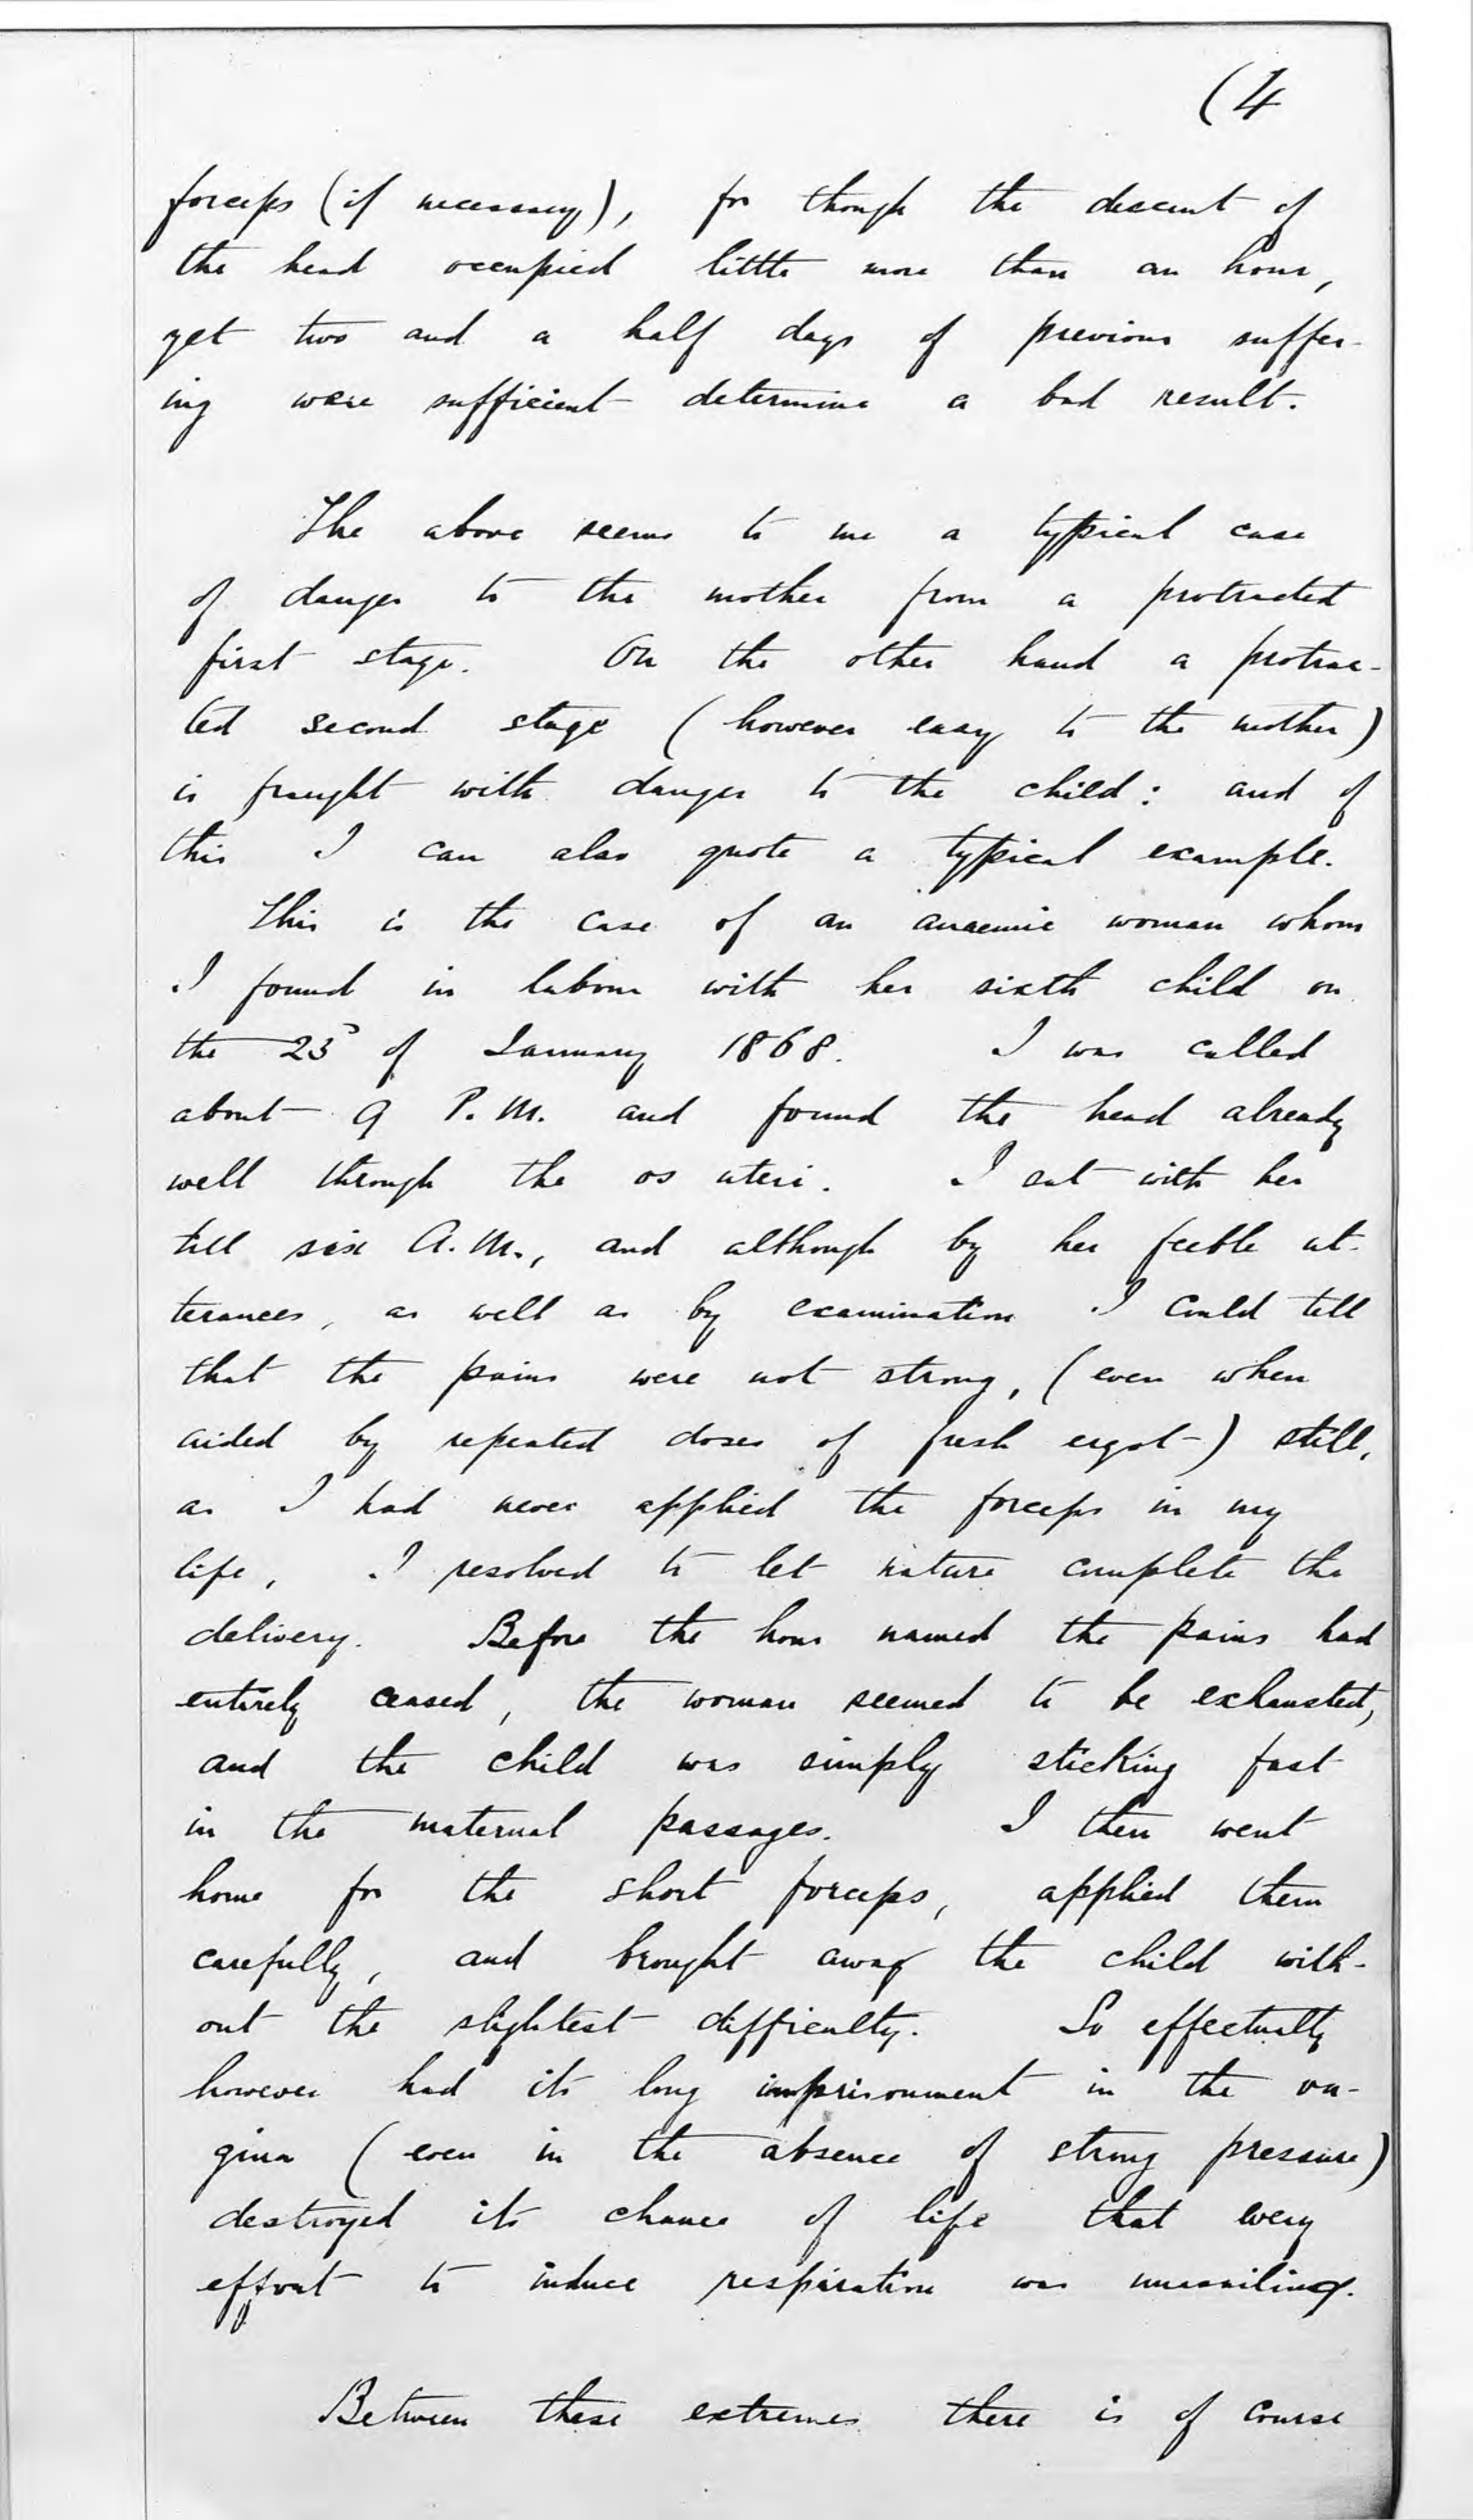 (4
forceps (if necessary), for though the descent of
the head occupied little more than an hour,
yet two and a half days of previous suffer-
ing were sufficient determine a bad result.
The above seems to me a typical case
of danger to the mother from a protracted
first stage. On the other hand a protrac-
ted second stage (however easy to the mother)
is fraught with danger to the child: and of
this I can also quote a typical example.
This is the case of an anaemic woman whom
I found in labour with her sixth child on
the 23 of January 1868. I was called
about 9 P.M. and found the head already
well through the os uteri. I sat with her
till six A.M., and although by her feeble ut-
terances, as well as by examination I could tell
that the pains were not strong, (even when
aided by repeated doses of fresh ergot) still,
as I had never applied the forceps in my
life, I resolved to let nature complete the
delivery. Before the hour named the pains had
entirely ceased, the woman seemed to be exhausted,
and the child was simply sticking fast
in the maternal passages. I then went
home for the short forceps, applied them
carefully, and brought away the child with-
out the slightest difficulty. So effectually
however had its long imprisonment in the va-
gina (even in the absence of strong pressure)
destroyed its chance of life that every
effort to induce respiration was unavailing.
Between these extremes there is of course